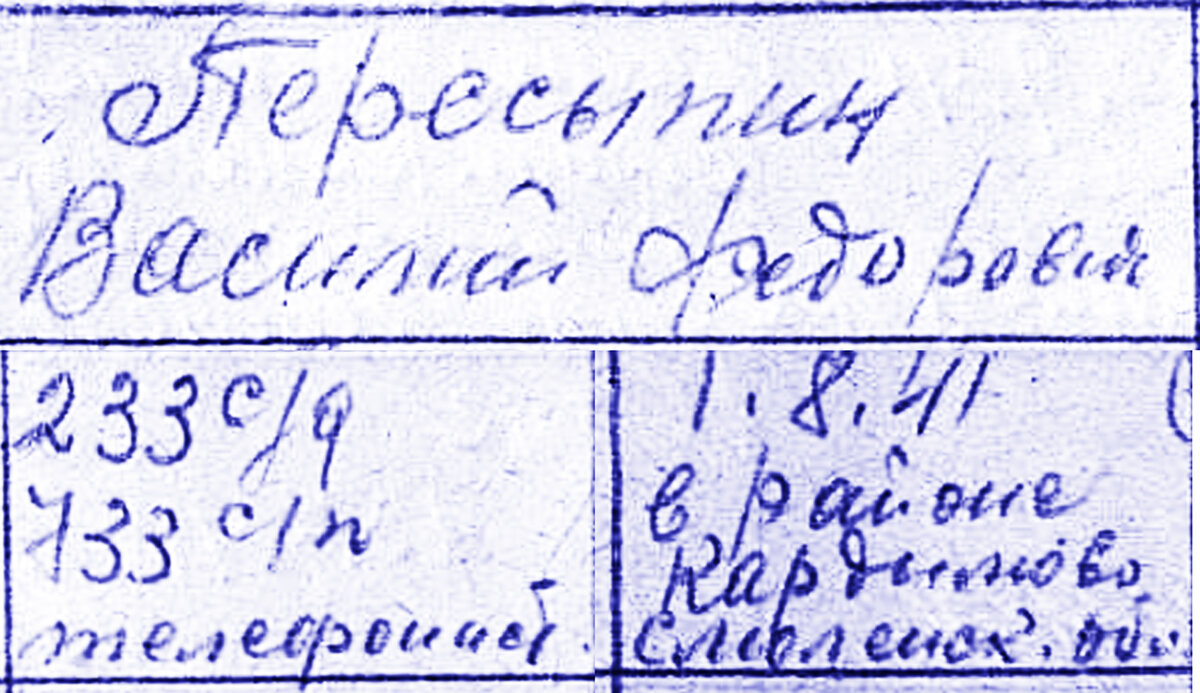 Пересыпин
Василий Федорович
233 с/д
733 с/п
телефонист
1.8.41
в районе
Кардымово
Смоленск. обл.